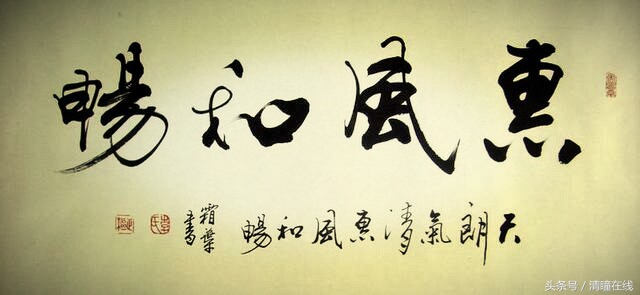 惠風和暢
天朗氣清惠風和暢
霜葉書
头条号 / 清瞳在线